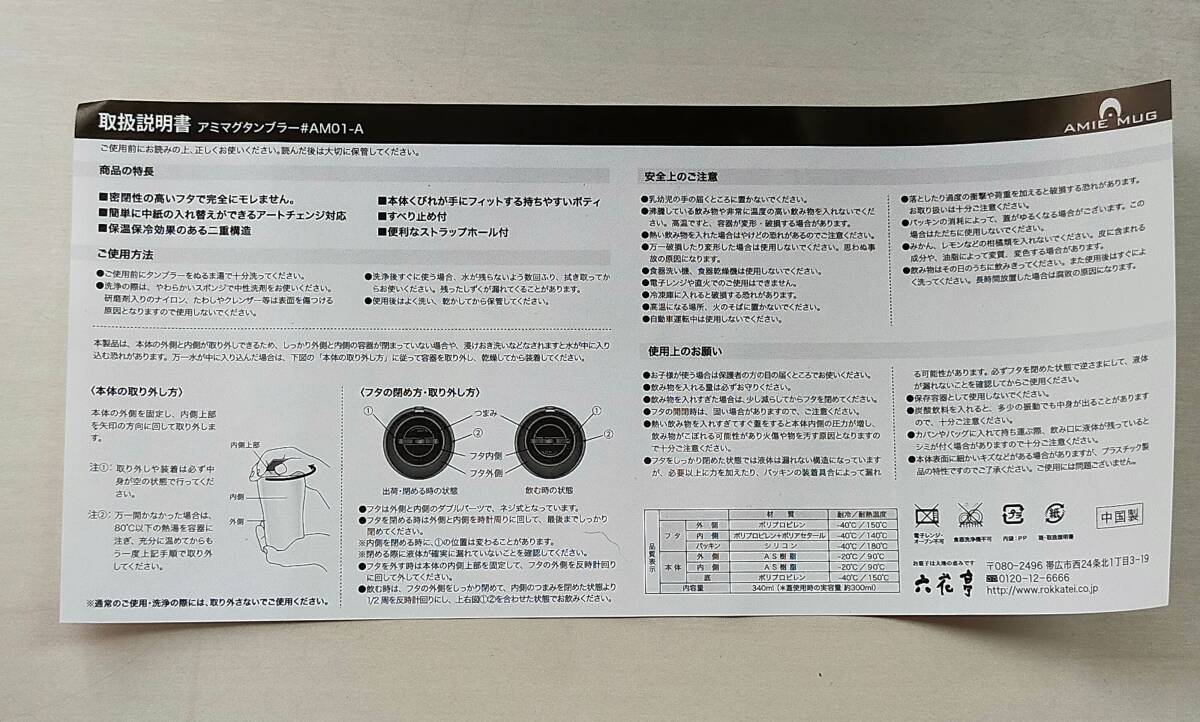 取扱説明書 アミマグタンブラー#AM01-A
AMIE MUG
ご使用前にお読みの上、正しくお使いください。読んだ後は大切に保管してください。
商品の特長
■密閉性の高いフタで完全にモレません。
■簡単に中紙の入れ替えができるアートチェンジ対応
■保温保冷効果のある二重構造
■本体くびれが手にフィットする持ちやすいボディ
■すべり止め付
■便利なストラップホール付
ご使用方法
●ご使用前にタンブラーをぬるま湯で十分洗ってください。
●洗浄の際は、やわらかいスポンジで中性洗剤をお使いください。
研磨剤入りのナイロン、たわしやクレンザー等は表面を傷つける
原因となりますので使用しないでください。
●洗浄後すぐに使う場合、水が残らないよう数回ふり、拭き取ってか
らお使いください。残ったしずくが漏れてくることがあります。
●使用後はよく洗い、乾かしてから保管してください。
本製品は、本体の外側と内側が取り外しできるため、しっかり外側と内側の容器が閉まっていない場合や、浸けおき洗いなどなされますと水が中に入り
込む恐れがあります。万一水が中に入り込んだ場合は、下図の「本体の取り外し方」に従って容器を取外し、乾燥してから装着してください。
〈本体の取り外し方〉
本体の外側を固定し、内側上部
を矢印の方向に回して取り外しま
す。
注①: 取り外しや装着は必ず中
身が空の状態で行ってくだ
さい。
注②: 万一開かなかった場合は、
80℃以下の熱湯を容器に
注ぎ、充分に温めてからも
う一度上記手順で取り外
してください。
内側上部
内側
外側
※通常のご使用・洗浄の際には、取り外さないでご使用ください。
〈フタの閉め方・取り外し方〉
①
つまみ
①
②
②
フタ内側
フタ外側
出荷・閉める時の状態
飲む時の状態
●フタは外側と内側のダブルパーツで、ネジ式となっています。
●フタを閉める時は外側と内側を時計周りに回して、最後までしっかり
閉めてください。
※内側を閉める時に、①の位置は変わることがあります。
※閉める際に液体が確実に漏れていないことを確認してください。
●フタを外す時は本体の内側上部を固定して、フタの外側を反時計回り
に回して外してください。
●飲む時は、フタの外側をしっかり閉めて、内側のつまみを閉めた状態より
1/2周を反時計回りにし、上右図①②を合わせた状態でお飲みください。
安全上のご注意
●乳幼児の手の届くところに置かないでください。
●沸騰している飲み物や非常に温度の高い飲み物を入れないでくだ
さい。高温ですと、容器が変形・破損する場合があります。
●熱い飲み物を入れた場合はやけどの恐れがあるのでご注意ください。
●万一破損したり変形した場合は使用しないでください。思わぬ事
故の原因になります。
●食器洗い機、食器乾燥機は使用しないでください。
●電子レンジや直火でのご使用はできません。
●冷凍庫に入れると破損する恐れがあります。
●高温になる場所、火のそばに置かないでください。
●自動車運転中は使用しないでください。
●落としたり過度の衝撃や荷重を加えると破損する恐れがあります。
お取り扱いは十分ご注意ください。
●パッキンの消耗によって、蓋がゆるくなる場合がございます。この
場合はただちに使用しないでください。
●みかん、レモンなどの柑橘類を入れないでください。皮に含まれる
成分や、油脂によって変質、変色する場合があります。
●飲み物はその日のうちに飲みきってください。また使用後はすぐによ
く洗ってください。長時間放置した場合は腐敗の原因になります。
使用上のお願い
●お子様が使う場合は保護者の方の目の届くところでお使いください。
●飲み物を入れる量は必ずお守りください。
●飲み物を入れすぎた場合は、少し減らしてからフタを閉めてください。
●フタの開閉時は、固い場合がありますので、ご注意ください。
●熱い飲み物を入れすぎてすぐ蓋をすると本体内側の圧力が増し、
飲み物がこぼれる可能性があり火傷や物を汚す原因となりますの
で十分ご注意ください。
●フタをしっかり閉めた状態では液体は漏れない構造になっています
が、必要以上に力を加えたり、パッキンの装着具合によって漏れ
る可能性があります。必ずフタを閉めた状態で逆さまにして、液体
が漏れないことを確認してからご使用ください。
●保存容器として使用しないでください。
●炭酸飲料を入れると、多少の振動でも中身が出ることがあります
ので、十分ご注意ください。
●カバンやバッグに入れて持ち運ぶ際、飲み口に液体が残っていると
シミが付く場合がありますので十分ご注意ください。
●本体表面に細かいキズなどがある場合がありますが、プラスチック製
品の特性ですのでご了承ください。ご使用には問題ございません。
品質表示
材質 耐冷／耐熱温度
フタ 外側 ポリプロピレン -40℃／150℃
内側 ポリプロピレン+ポリアセタール -40℃／140℃
パッキン シリコン -40℃／180℃
本体 外側 AS樹脂 -20℃／90℃
内側 AS樹脂 -20℃／90℃
底 ポリプロピレン -40℃／150℃
内容量 340ml（＊蓋使用時の実容量 約300ml）
電子レンジ・
オーブン不可
食器洗浄機不可
プラ
内袋：PP
紙
箱・取扱説明書
中国製
お菓子は大地の恵みです
六花亭
〒080-2496 帯広市西24条北1丁目3-19
0120-12-6666
http://www.rokkatei.co.jp